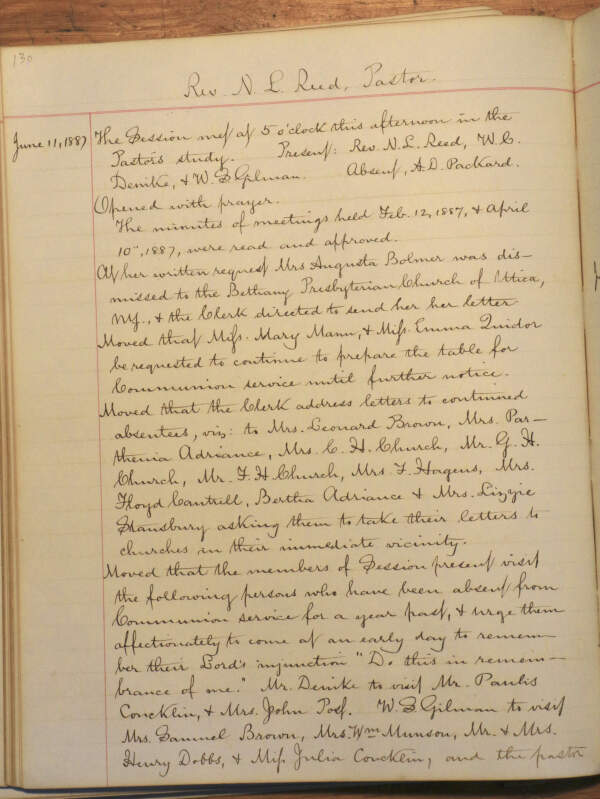 130
Rev. N. L. Reed, Pastor.
June 11, 1887 The Session met at 5 o'clock this afternoon in the
Pastor's study. Present: Rev. N. L. Reed, W. C.
Denike, & W. S. Gilman. Absent, A. D. Packard.
Opened with prayer.
The minutes of meetings held Feb. 12, 1887, & April
10th, 1887, were read and approved.
At her written request Mrs Augusta Bolmer was dis-
missed to the Bethany Presbyterian Church of Utica,
NY., & the Clerk directed to send her her letter
Moved that Miss. Mary Mann, & Miss. Emma Quidor
be requested to continue to prepare the table for
Communion service until further notice.
Moved that the Clerk address letters to continued
absentees, viz: to Mrs. Leonard Brown, Mrs. Par-
thenia Adriance, Mrs. C. H. Church, Mr. G. H.
Church, Mr. F. H. Church, Mrs. F. Hagens, Mrs.
Floyd Cantrell, Bertha Adriance & Mrs. Lizzie
Stansbury asking them to take their letters to
churches in their immediate vicinity.
Moved that the members of Session present visit
the following persons who have been absent from
Communion service for a year past, & urge them
affectionately to come at an early day to remem-
ber their Lord's injunction "Do this in remem-
brance of me." Mr. Denike to visit Mr. Paulis
Concklin, & Mrs. John Post. W. S. Gilman to visit
Mrs. Samuel Brown, Mrs. Wm Munson, Mr. & Mrs.
Henry Dobbs, & Miss Julia Concklin, and the pastor